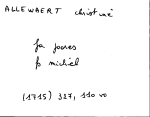 ALLEWAERT christine
fa joores
fs michiel
(1715) 327, 110 vo